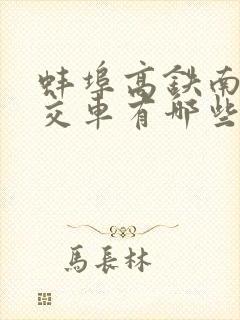 蚌埠高鉄南
交車有哪些
馬長林